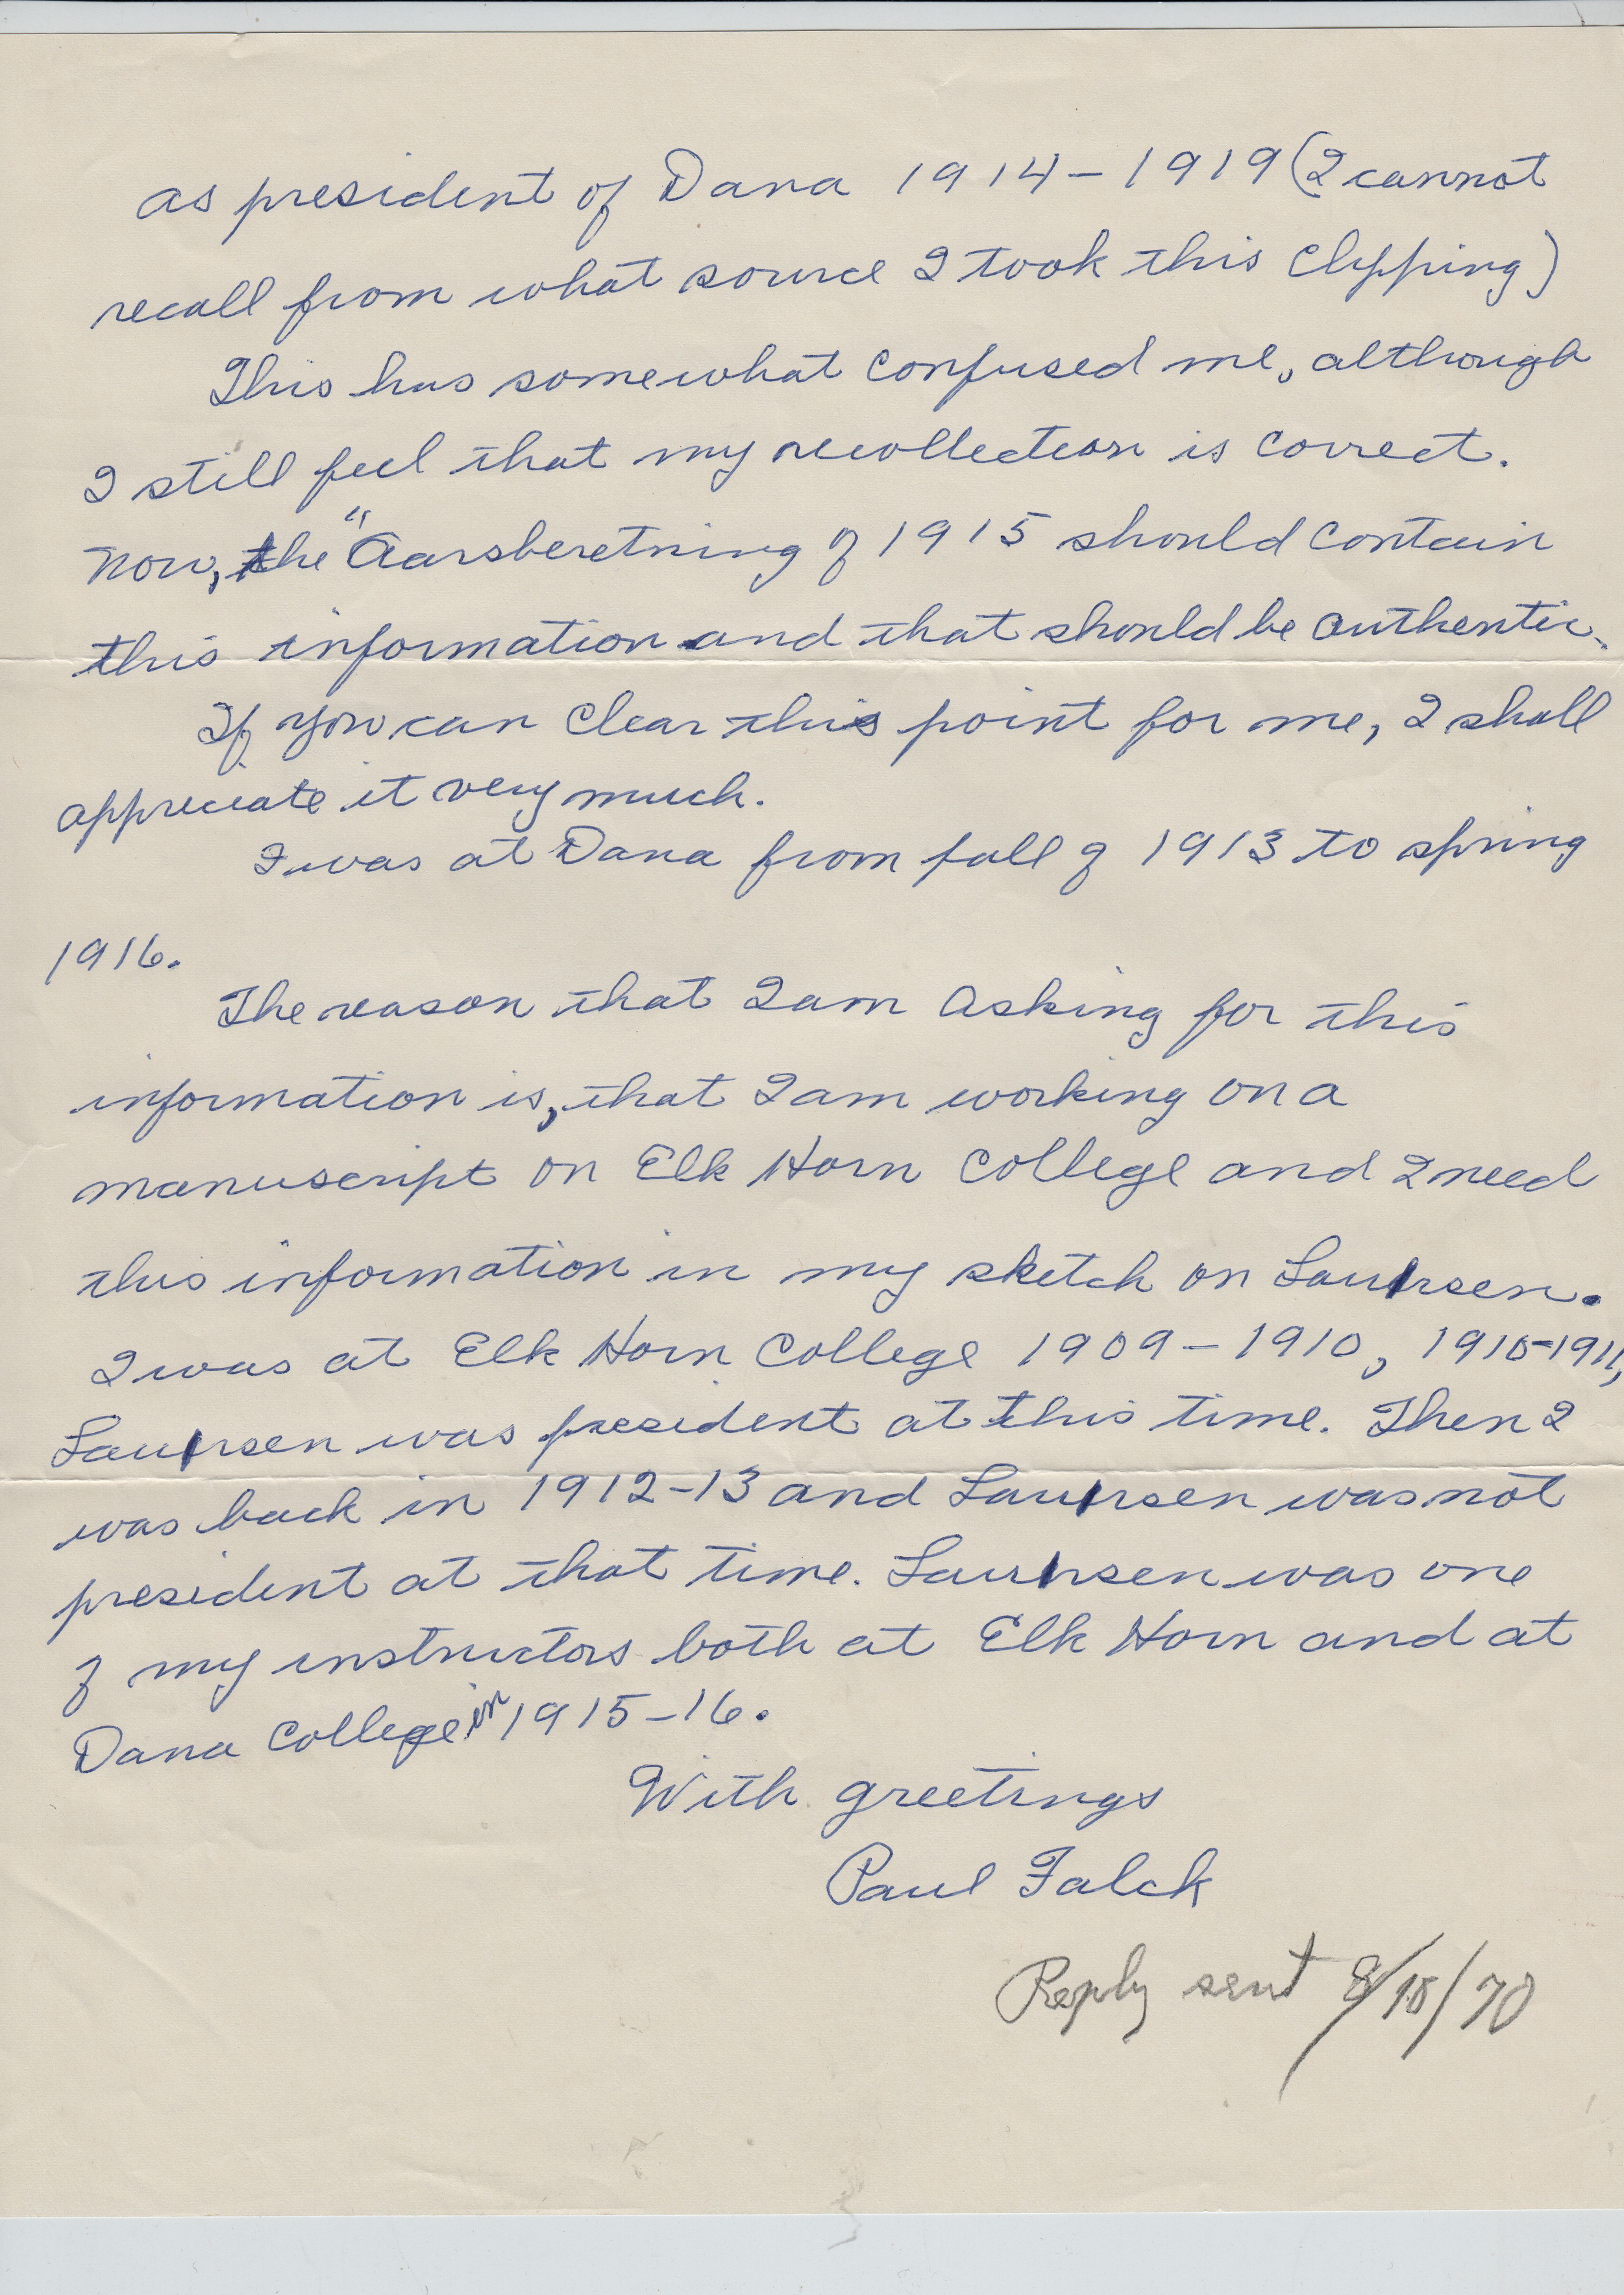 as president of Dana 1914-1919 (I cannot
recall from what source I took this clipping)
This has somewhat confused me, although
I still feel that my recollection is correct.
Now, the "Aarsberetning of 1915 should contain
this information and that should be authentic.
If you can clear this point for me, I shall
appreciate it very much.
I was at Dana from fall of 1913 to spring
1916.
The reason that I am asking for this
information is, that I am working on a
manuscript on Elk Horn College and I need
this information in my sketch on Laursen.
I was at Elk Horn College 1909-1910, 1910-1911,
Laursen was president at this time. Then I
was back in 1912-13 and Laursen was not
president at that time. Laursen was one
of my instructors both at Elk Horn and at
Dana College in 1915-16.
With greetings
Paul Falck
Reply sent 8/18/70